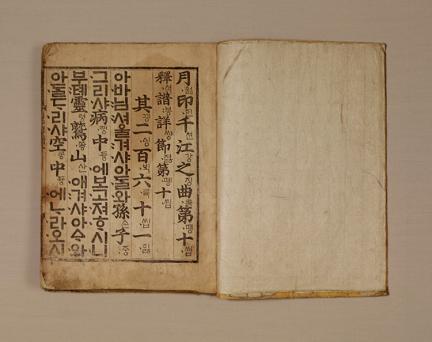 月印千江之曲第十
釋譜詳節第十
其二百六十一
아바님셔울겨샤아ᄃᆞᆯ와孫子
그리샤病中에보고져ᄒᆞ시니
부톄靈鷲山애겨샤아ᅀᆞ와
아ᄃᆞᆯᄃᆞ리샤空中에ᄂᆞ라오시